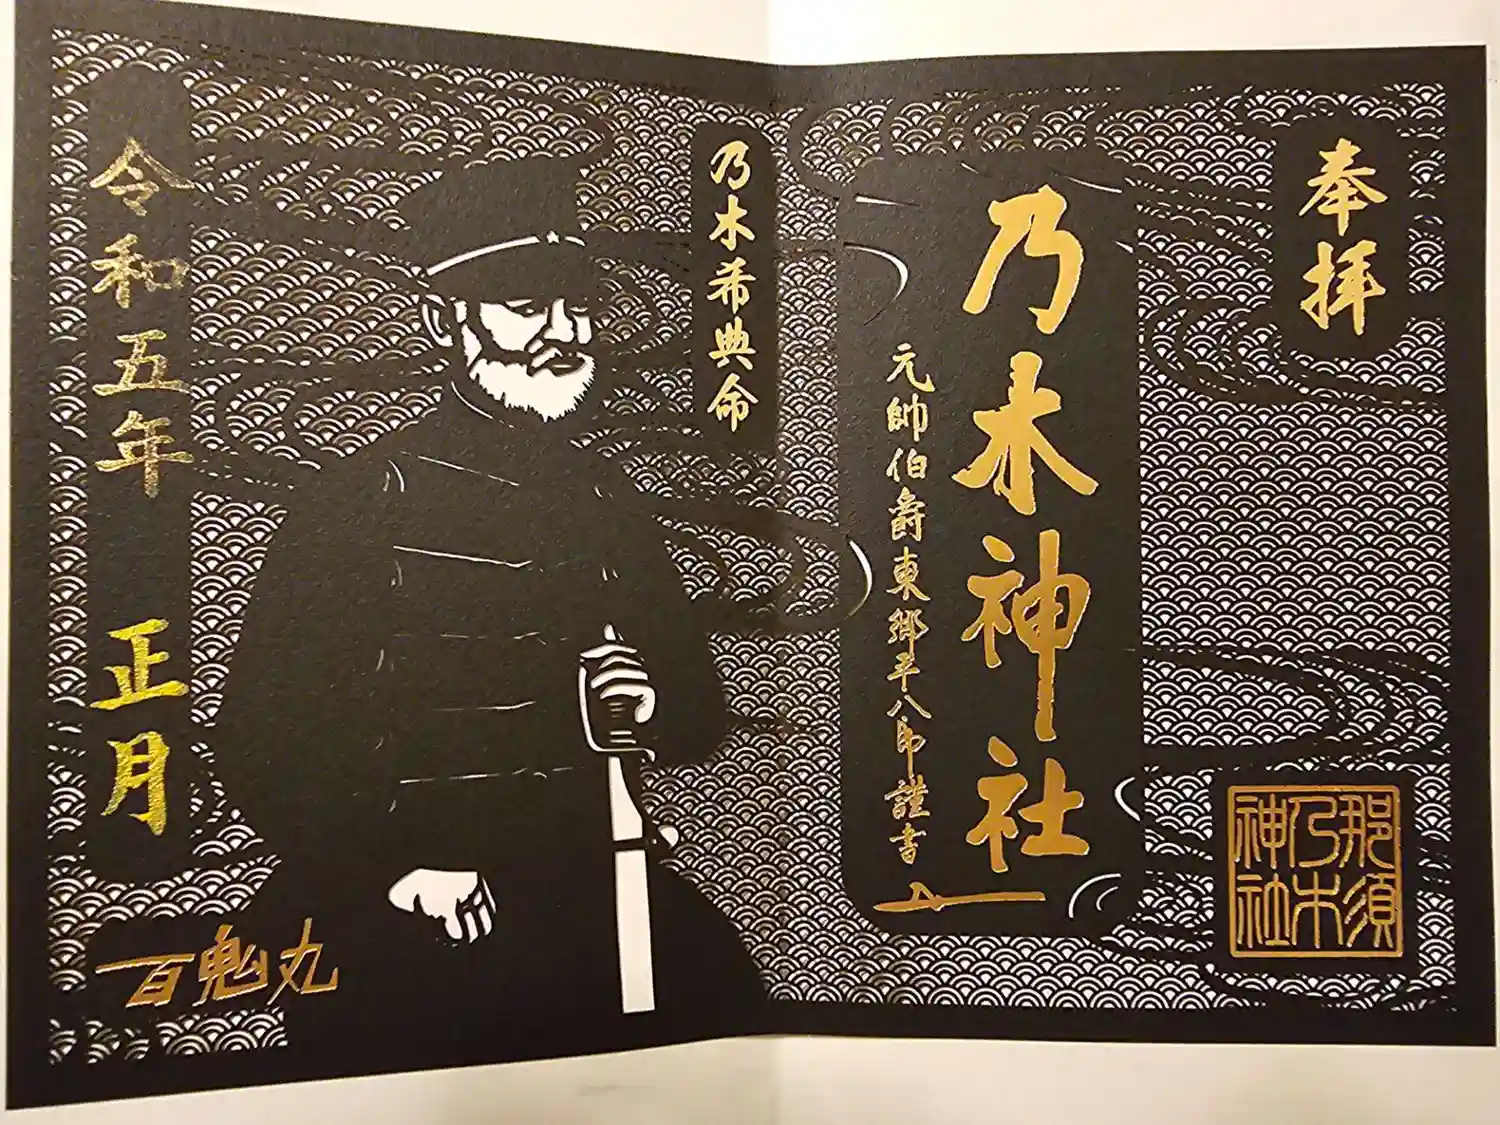 奉拝
乃木神社
元帥伯爵東郷平八郎謹書
那須
乃木
神社
乃木希典命
令和五年 正月
百鬼丸